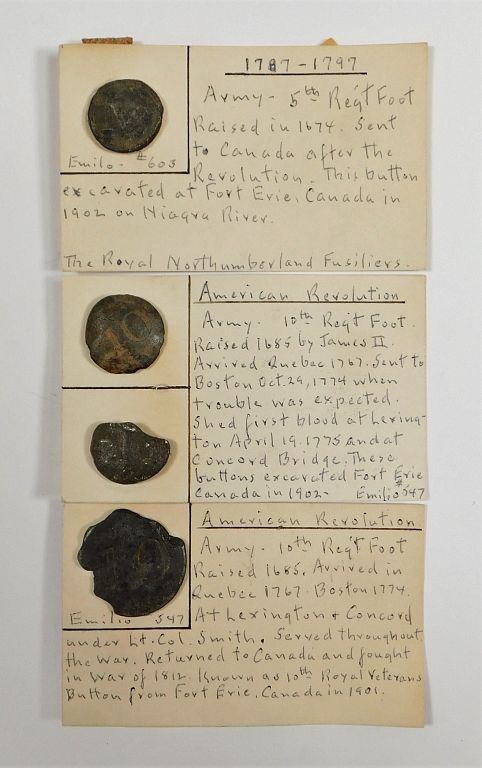 1787-1797
Army - 5th Reg't Foot
Raised in 1674. Sent
to Canada after the
Revolution. This button
Emilo - #603
excavated at Fort Erie, Canada in
1902 on Niagra River.
The Royal Northumberland Fusiliers.
American Revolution
Army - 10th Reg't Foot.
Raised 1685 by James II.
Arrived Quebec 1767. Sent to
Boston Oct. 29, 1774 when
trouble was expected.
Shed first blood at Lexing-
ton April 19. 1775 and at
Concord Bridge. These
buttons excavated Fort Erie
Canada in 1902- Emilio #547
10
American Revolution
Army - 10th Reg't Foot
Raised 1685. Arrived in
Quebec 1767. Boston 1774.
At Lexington + Concord
10
Emilio 547
under Lt. Col. Smith. Served throughout
the war. Returned to Canada and fought
in War of 1812. Known as 10th Royal Veterans
Button from Fort Erie, Canada in 1901.